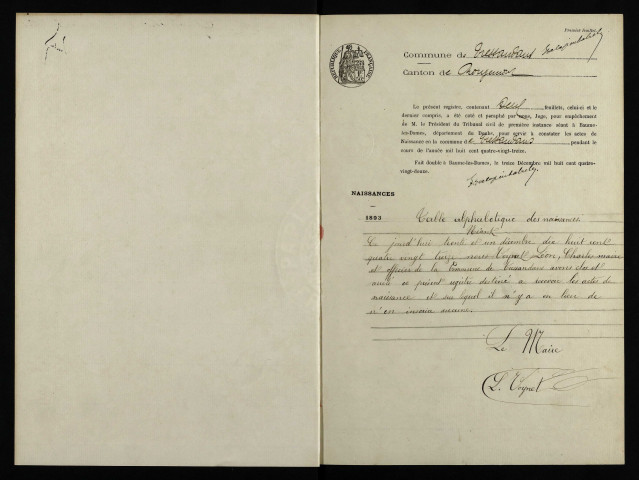 Premier feuillet
Commune de Tressandans
Canton de Rougemont
Le présent registre, contenant deux feuillets, celui-ci et le
dernier compris, a été coté et paraphé par nous, Juge, pour empêchement
de M. le Président du Tribunal civil de première instance séant à Baume-
les-Dames, département du Doubs, pour servir à constater les actes de
Naissance en la commune de Tressandans pendant le
cours de l'année mil huit cent quatre-vingt-treize.
Fait double à Baume-les-Dames, le treize Décembre mil huit cent quatre-
vingt-douze.
NAISSANCES
1893 Table alphabétique des naissances.
Néant
Ce jourd'hui trente et un décembre dix huit cent
quatre vingt treize nous Léon, Charles maire
et officier de la Commune de Tressandans avons clos et
arrêté le présent registre destiné à recevoir les actes de
naissance et sur lequel il n'y a eu lieu de
n'en inscrire aucune.
Le Maire